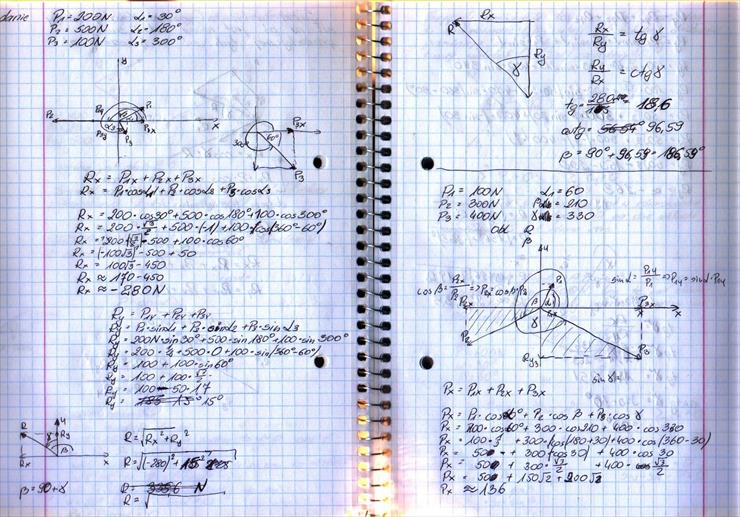 dane P₁ = 200N α₁ = 30°
P₂ = 500N α₂ = 180°
P₃ = 100N α₃ = 300°
y
P₂ x
P₃
60°
P₃x
P₃
Rx = P₁x + P₂x + P₃x
Rx = P₁·cosα₁ + P₂·cosα₂ + P₃·cosα₃
Rx = 200·cos30° + 500·cos180° + 100·cos300°
Rx = 200·√3/2 + 500·(-1) + 100·(cos(360°-60°)
Rx = 200 √3/2 - 500 + 100·cos60°
Rx = (-100√3) - 500 + 50
Rx = 100√3 - 450
Rx ≈ 170 - 450
Rx ≈ -280N
Ry = P₁y + P₂y + P₃y
Ry = P₁·sinα₁ + P₂·sinα₂ + P₃·sinα₃
Ry = 200N·sin30° + 500·sin180° + 100·sin300°
Ry = 200·½ + 500·0 + 100·sin(360°-60°)
Ry = 100 + 100·sin60°
Ry = 100 + 100·√3/2
Ry = 100 - 50·17
Ry = 15°
R Ry y
Rx β x
β = 90 + γ
R = √Rx² + Ry²
R = √(-280)² + 15²
R = N
R = √
Rx
R Ry
γ
Rx/Ry = tg γ
Ry/Rx = ctg γ
tg = 280/15 = 18,6
arctg = 96,59
β = 90° + 96,59 = 186,59°
P₁ = 100N α₁ = 60
P₂ = 300N β = 210
P₃ = 400N γ = 330
Obl R
β
y
cos β = P₂x/P₂ => P₂x = cos β·P₂
sin α = P₁y/P₁ => P₁y = sin α·P₁
β
γ
P₃x x
P₂
Ry₃ P₃
sin γ
Px = P₁x + P₂x + P₃x
Px = P₁·cos α + P₂·cos β + P₃·cos γ
Px = 100·cos60° + 300·cos210 + 400·cos330
Px = 100·½ + 300·(cos(180+30) + 400·cos(360-30)
Px = 50 + 300(cos30) + 400·cos 30
Px = 50 + 300·√3/2 + 400·√3/2
Px = 50 + 150√2 + 200√2
Px ≈ 136